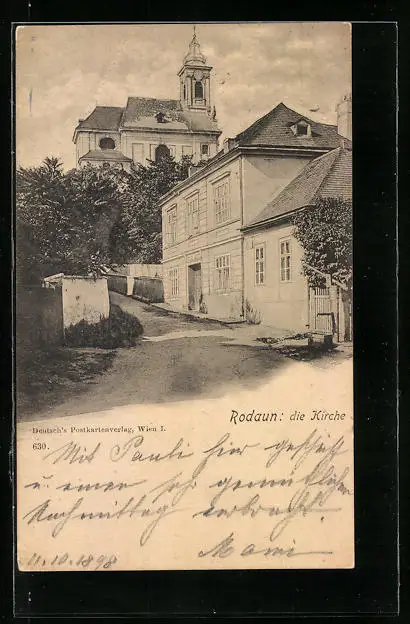 Rodaun: die Kirche
Deutsch's Postkartenverlag, Wien I.
630.
Mit Pauli hier gefischt
u. einen sehr gemütlichen
Nachmittag verbracht.
Mami
11.10.1898